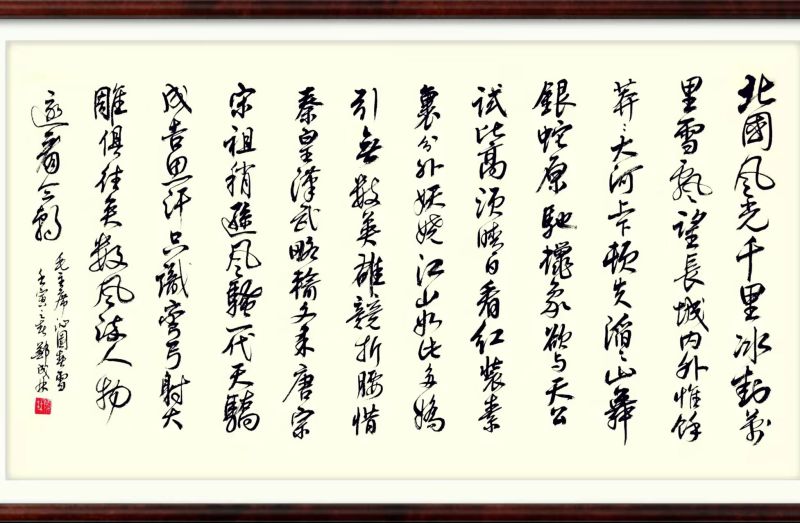 北國风光千里冰封萬
里雪飘望長城内外惟餘
莽〻大河上下顿失滔〻山舞
銀蛇原馳蠟象欲与天公
试比高须晴日看红装素
裹分外妖娆江山如此多嬌
引無数英雄競折腰惜
秦皇漢武略输文采唐宗
宋祖稍遜风骚一代天驕
成吉思汗只識彎弓射大
雕俱往矣数风流人物
還看今朝
毛主席沁園春雪
壬寅之鄭成